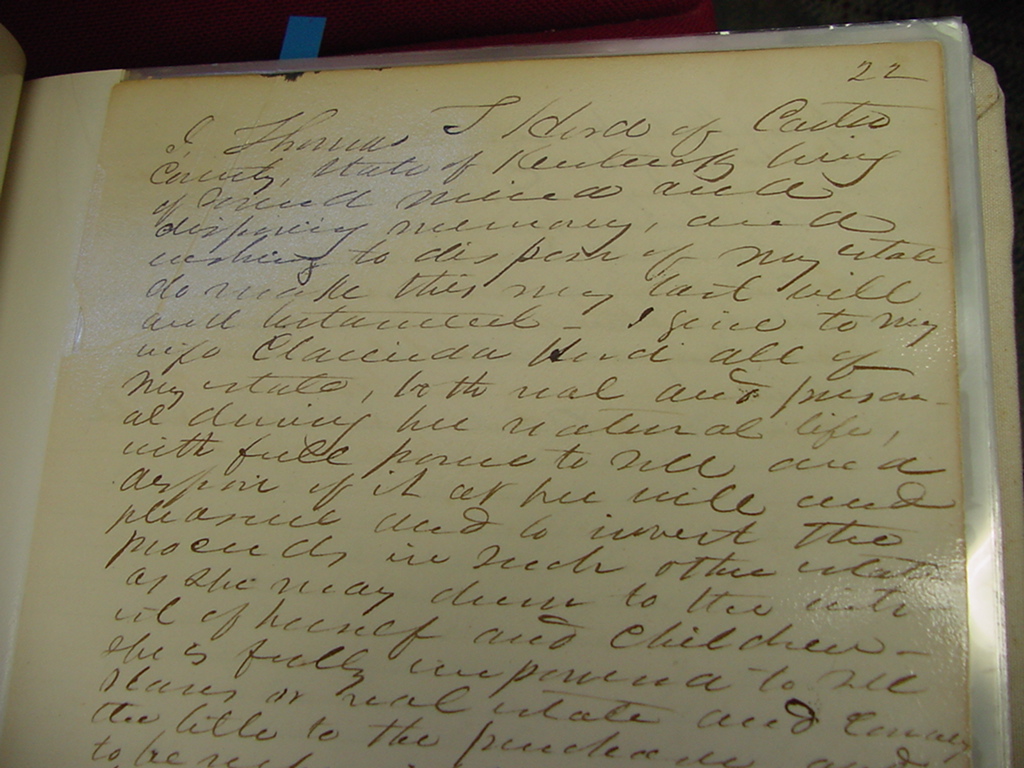 22
I, Thomas T Hord of Carter
County, State of Kentucky being
of sound mind and
disposing memory, and
wishing to dispose of my estate
do make this my last will
and testament - I give to my
wife Claccinda Hord all of
my estate, both real and person-
al during her natural life,
with full power to sell and
dispose of it at her will and
pleasure and to invest the
proceeds in such other estate
as she may deem to the inte-
rest of herself and children -
She is fully impowered to sell
slaves or real estate and convey
the title to the purchaser and
to be